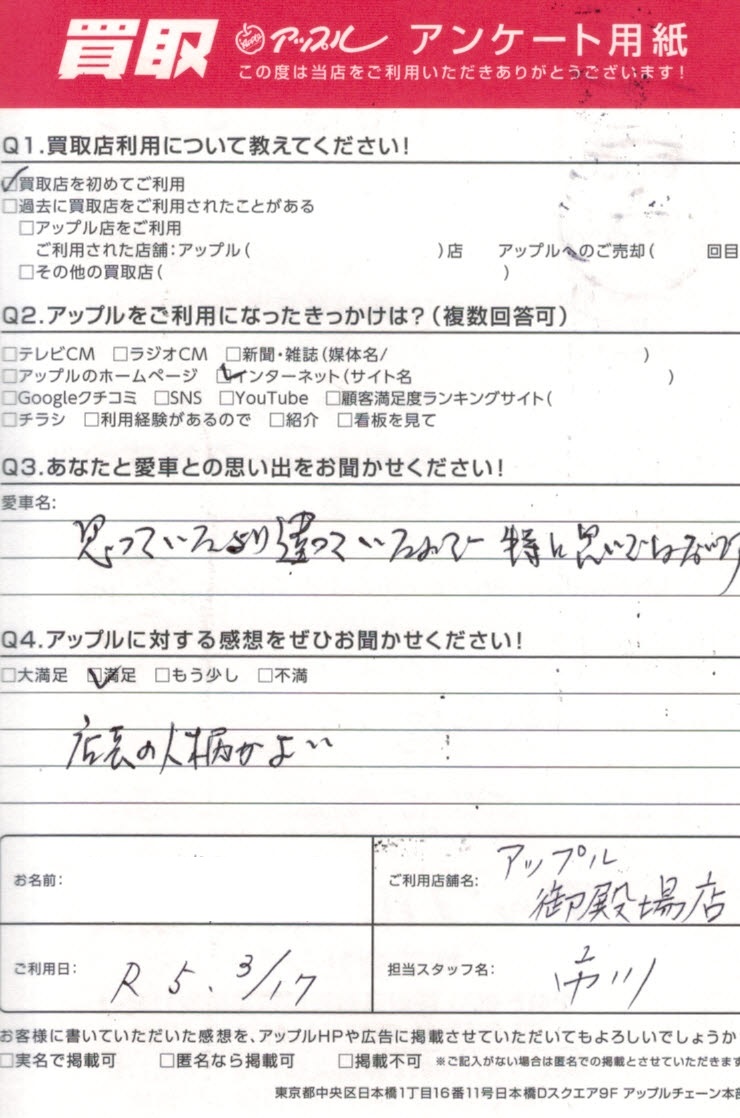 買取 アップル アンケート用紙
この度は当店をご利用いただきありがとうございます!
Q1.買取店利用について教えてください!
☑買取店を初めてご利用
□過去に買取店をご利用されたことがある
□アップル店をご利用
ご利用された店舗:アップル( )店 アップルへのご売却( 回目
□その他の買取店( )
Q2.アップルをご利用になったきっかけは?(複数回答可)
□テレビCM □ラジオCM □新聞・雑誌(媒体名/ )
□アップルのホームページ ☑インターネット(サイト名 )
□Googleクチコミ □SNS □YouTube □顧客満足度ランキングサイト(
□チラシ □利用経験があるので □紹介 □看板を見て
Q3.あなたと愛車との思い出をお聞かせください!
愛車名:
思っていたより違っていたので 特に思いではないです
Q4.アップルに対する感想をぜひお聞かせください!
□大満足 ☑満足 □もう少し □不満
店長の人柄がよい
お名前:
ご利用店舗名: アップル
御殿場店
ご利用日: R 5. 3/17
担当スタッフ名: 市川
お客様に書いていただいた感想を、アップルHPや広告に掲載させていただいてもよろしいでしょうか
□実名で掲載可 □匿名なら掲載可 □掲載不可 ※ご記入がない場合は匿名での掲載とさせていただきます
東京都中央区日本橋1丁目16番11号日本橋Dスクエア9F アップルチェーン本部